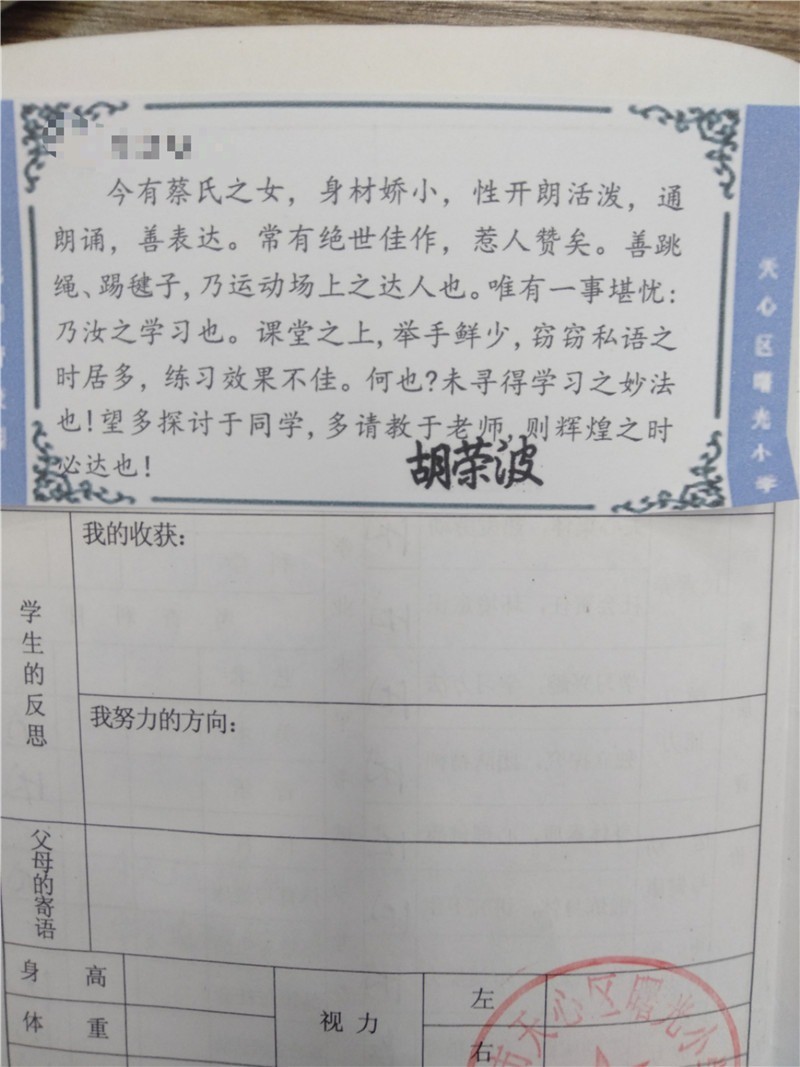 今有蔡氏之女，身材娇小，性开朗活泼，通
朗诵，善表达。常有绝世佳作，惹人赞矣。善跳
绳、踢毽子，乃运动场上之达人也。唯有一事堪忧：
乃汝之学习也。课堂之上，举手鲜少，窃窃私语之
时居多，练习效果不佳。何也？未寻得学习之妙法
也！望多探讨于同学，多请教于老师，则辉煌之时
必达也！
胡荣波
天心区曙光小学
学生的反思
我的收获：
我努力的方向：
父母的寄语
身高
体重
视力
左
右
市天心区曙光小学